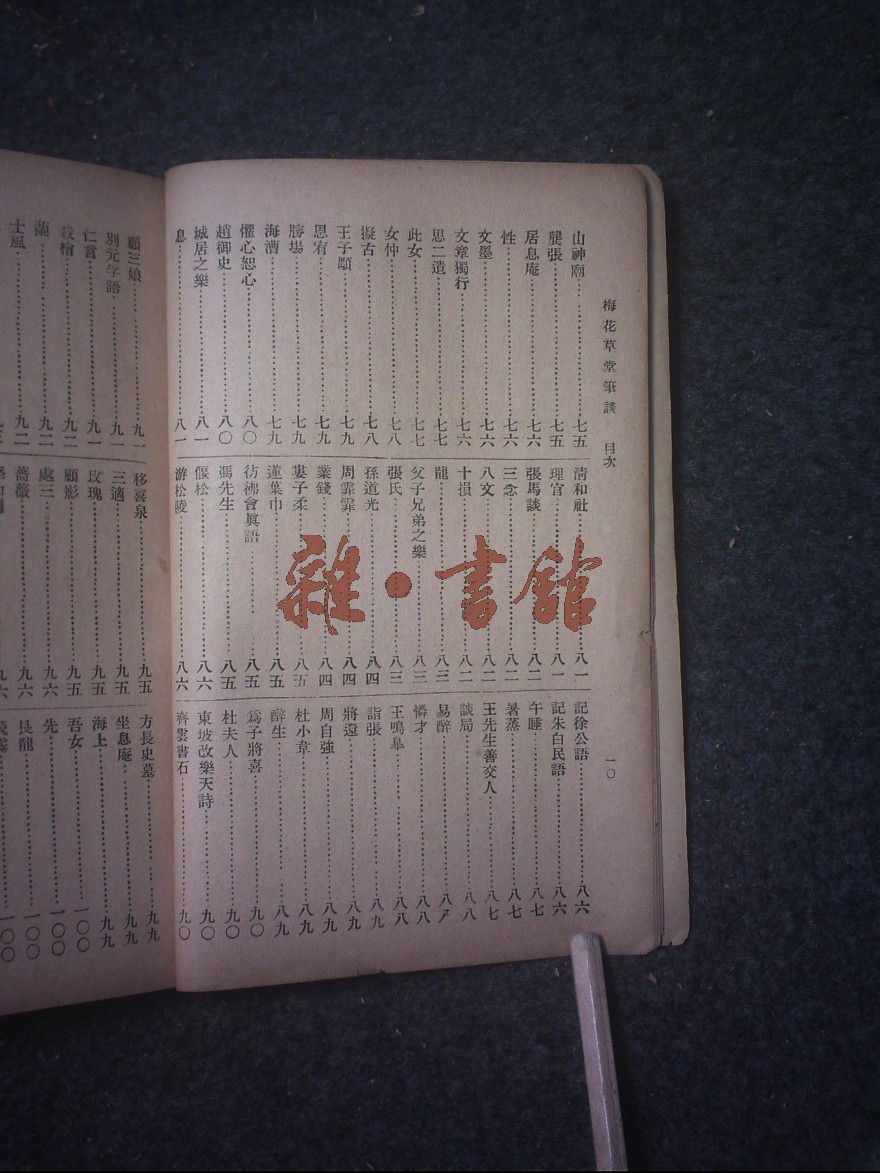 梅花草堂筆談 目次
一〇
山神廟……七五
龔張……七五
居息庵……七六
性……七六
文墨……七六
文章獨行……七六
思二遣……七七
此女……七七
女仲……七八
擬古……七八
王子顒……七九
恩宥……七九
勝場……七九
海漕……七九
懼心恕心……八〇
趙御史……八〇
城居之樂……八一
息……八一
清和社……八一
理官……八一
張馬談……八二
三念……八二
八文……八二
十損……八二
龍……八三
父子兄弟之樂……八三
張氏……八三
孫道光……八四
周霏霏……八四
業錢……八四
婁子柔……八五
蓮葉巾……八五
彷彿會眞語……八五
馮先生……八五
偃松……八六
游松陵……八六
記徐公語……八六
記朱白民語……八六
午睡……八七
暑蒸……八七
王先生善交人……八七
談局……八八
易醉……八八
憐才……八八
王鳴臯……八八
詣張……八九
將還……八九
周自強……八九
杜小韋……八九
醉生……八九
爲子將喜……九〇
杜夫人……九〇
東坡改樂天詩……九〇
齊雲書石……九〇
顧三娘……九一
別元孚語……九一
仁言……九一
栽檜……九二
蘭……九二
士風……
移喜泉……九五
三適……九五
玫瑰……九五
顧影……九五
處三……九六
薔薇……九六
方長史墓……九九
坐息庵……九九
海上……九九
吾女……一〇〇
先……一〇〇
艮龍……一〇〇
雜·書館